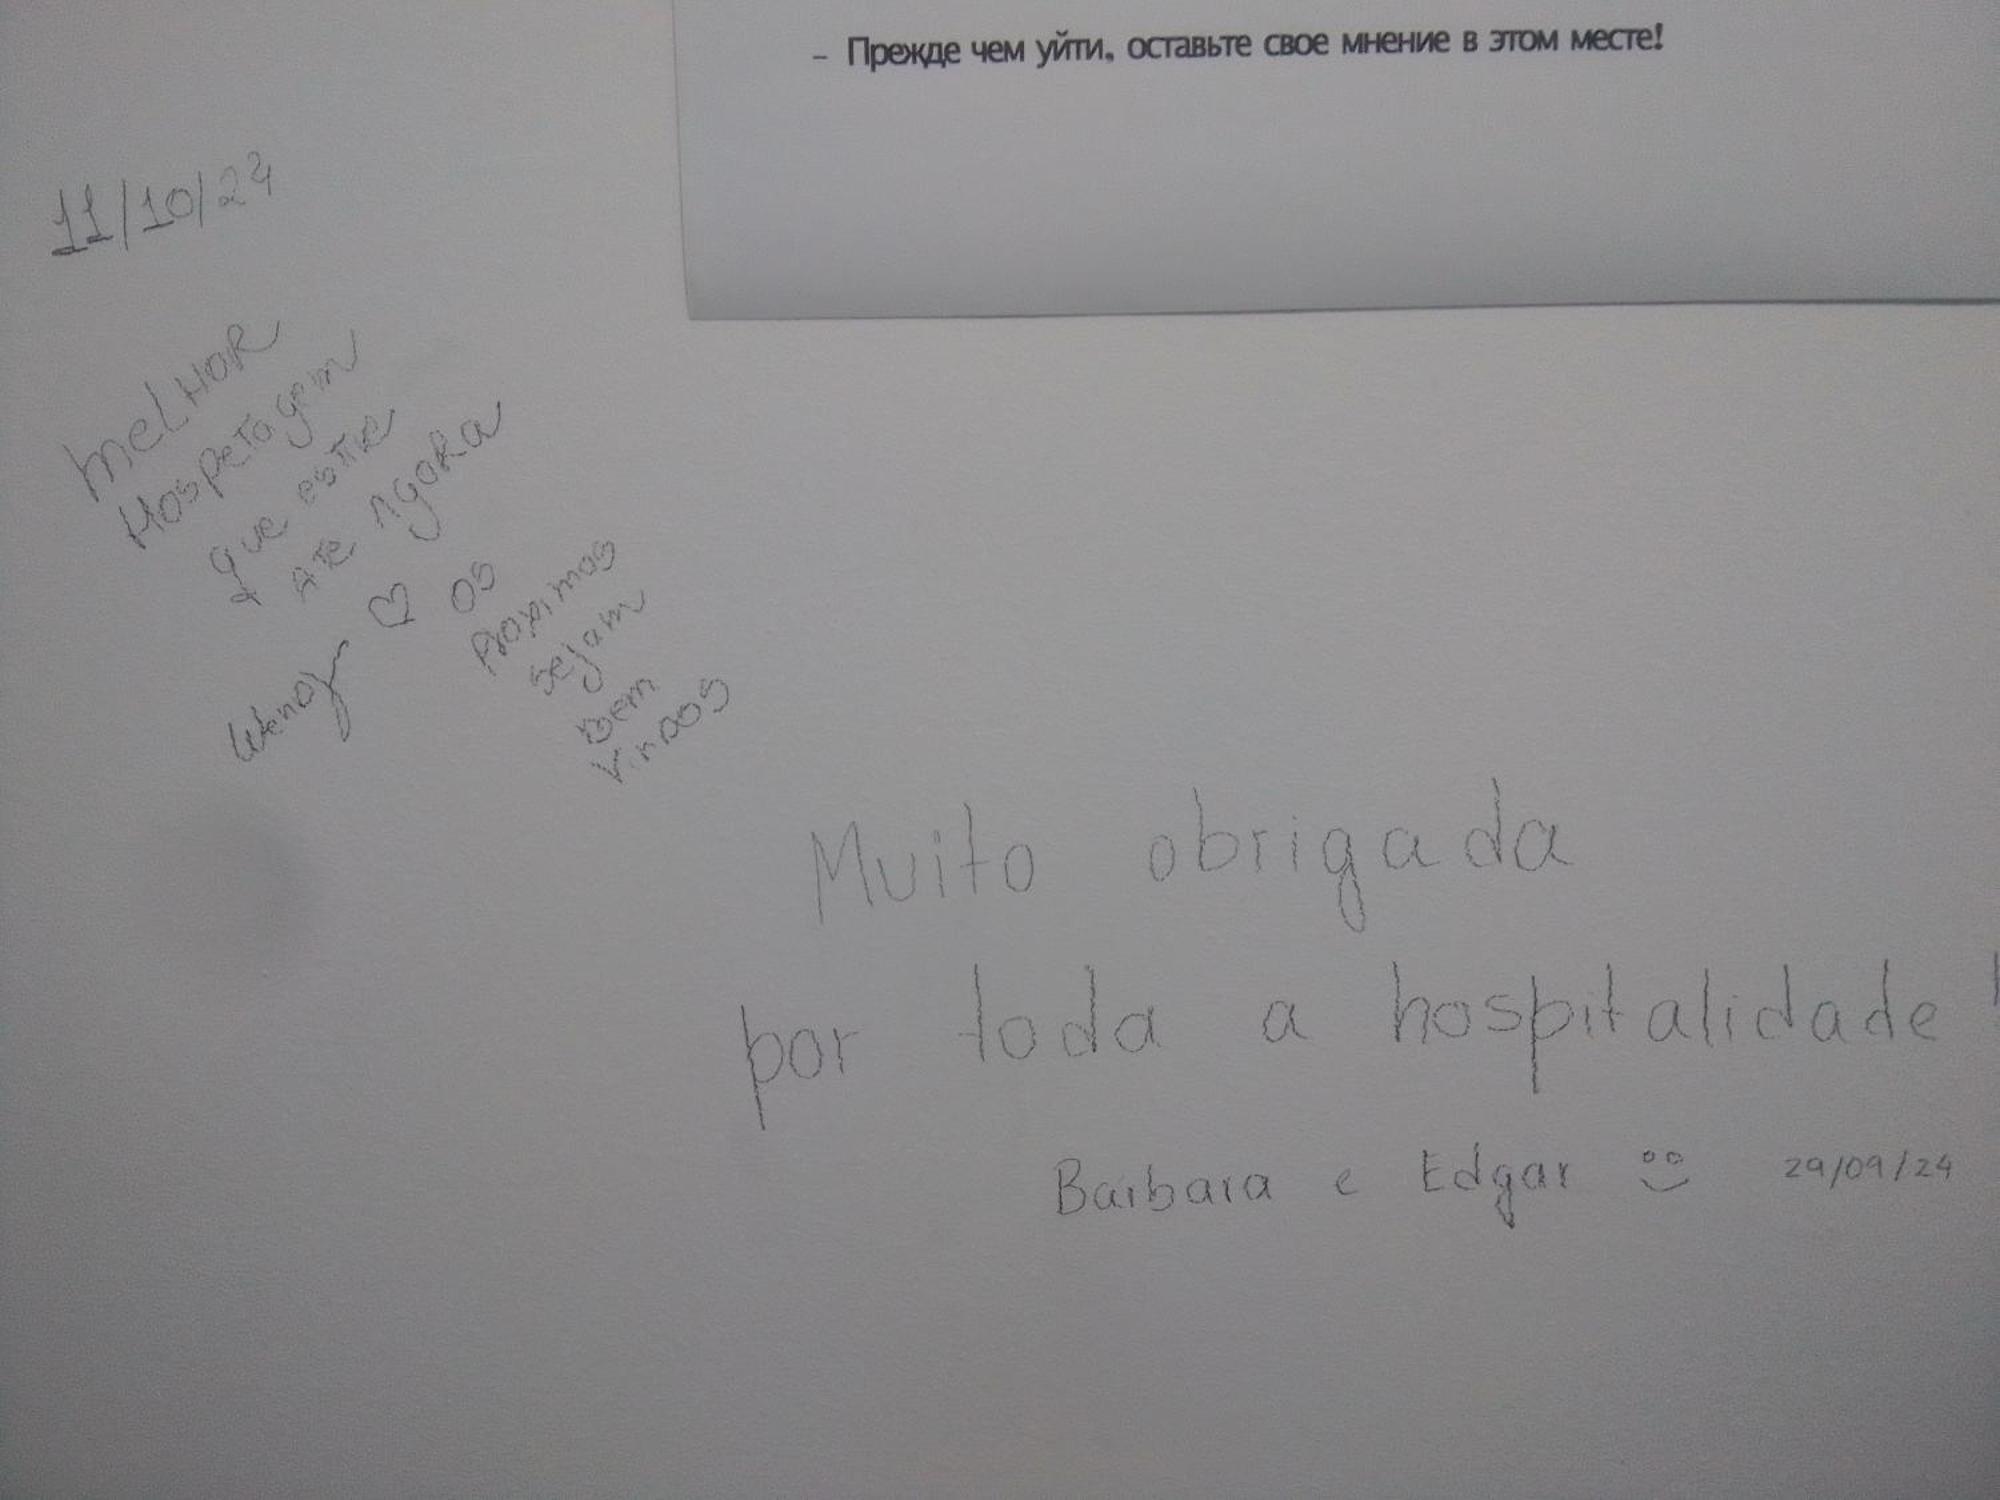 - Прежде чем уйти, оставьте свое мнение в этом месте!
11/10/24
MELHOR
HOSPETAGEM
que estive
ATE AGORA
♡ OS
PROXIMOS
sejam
BEM
VINDOS
Muito obrigada
por toda a hospitalidade!
Barbara e Edgar 29/09/24